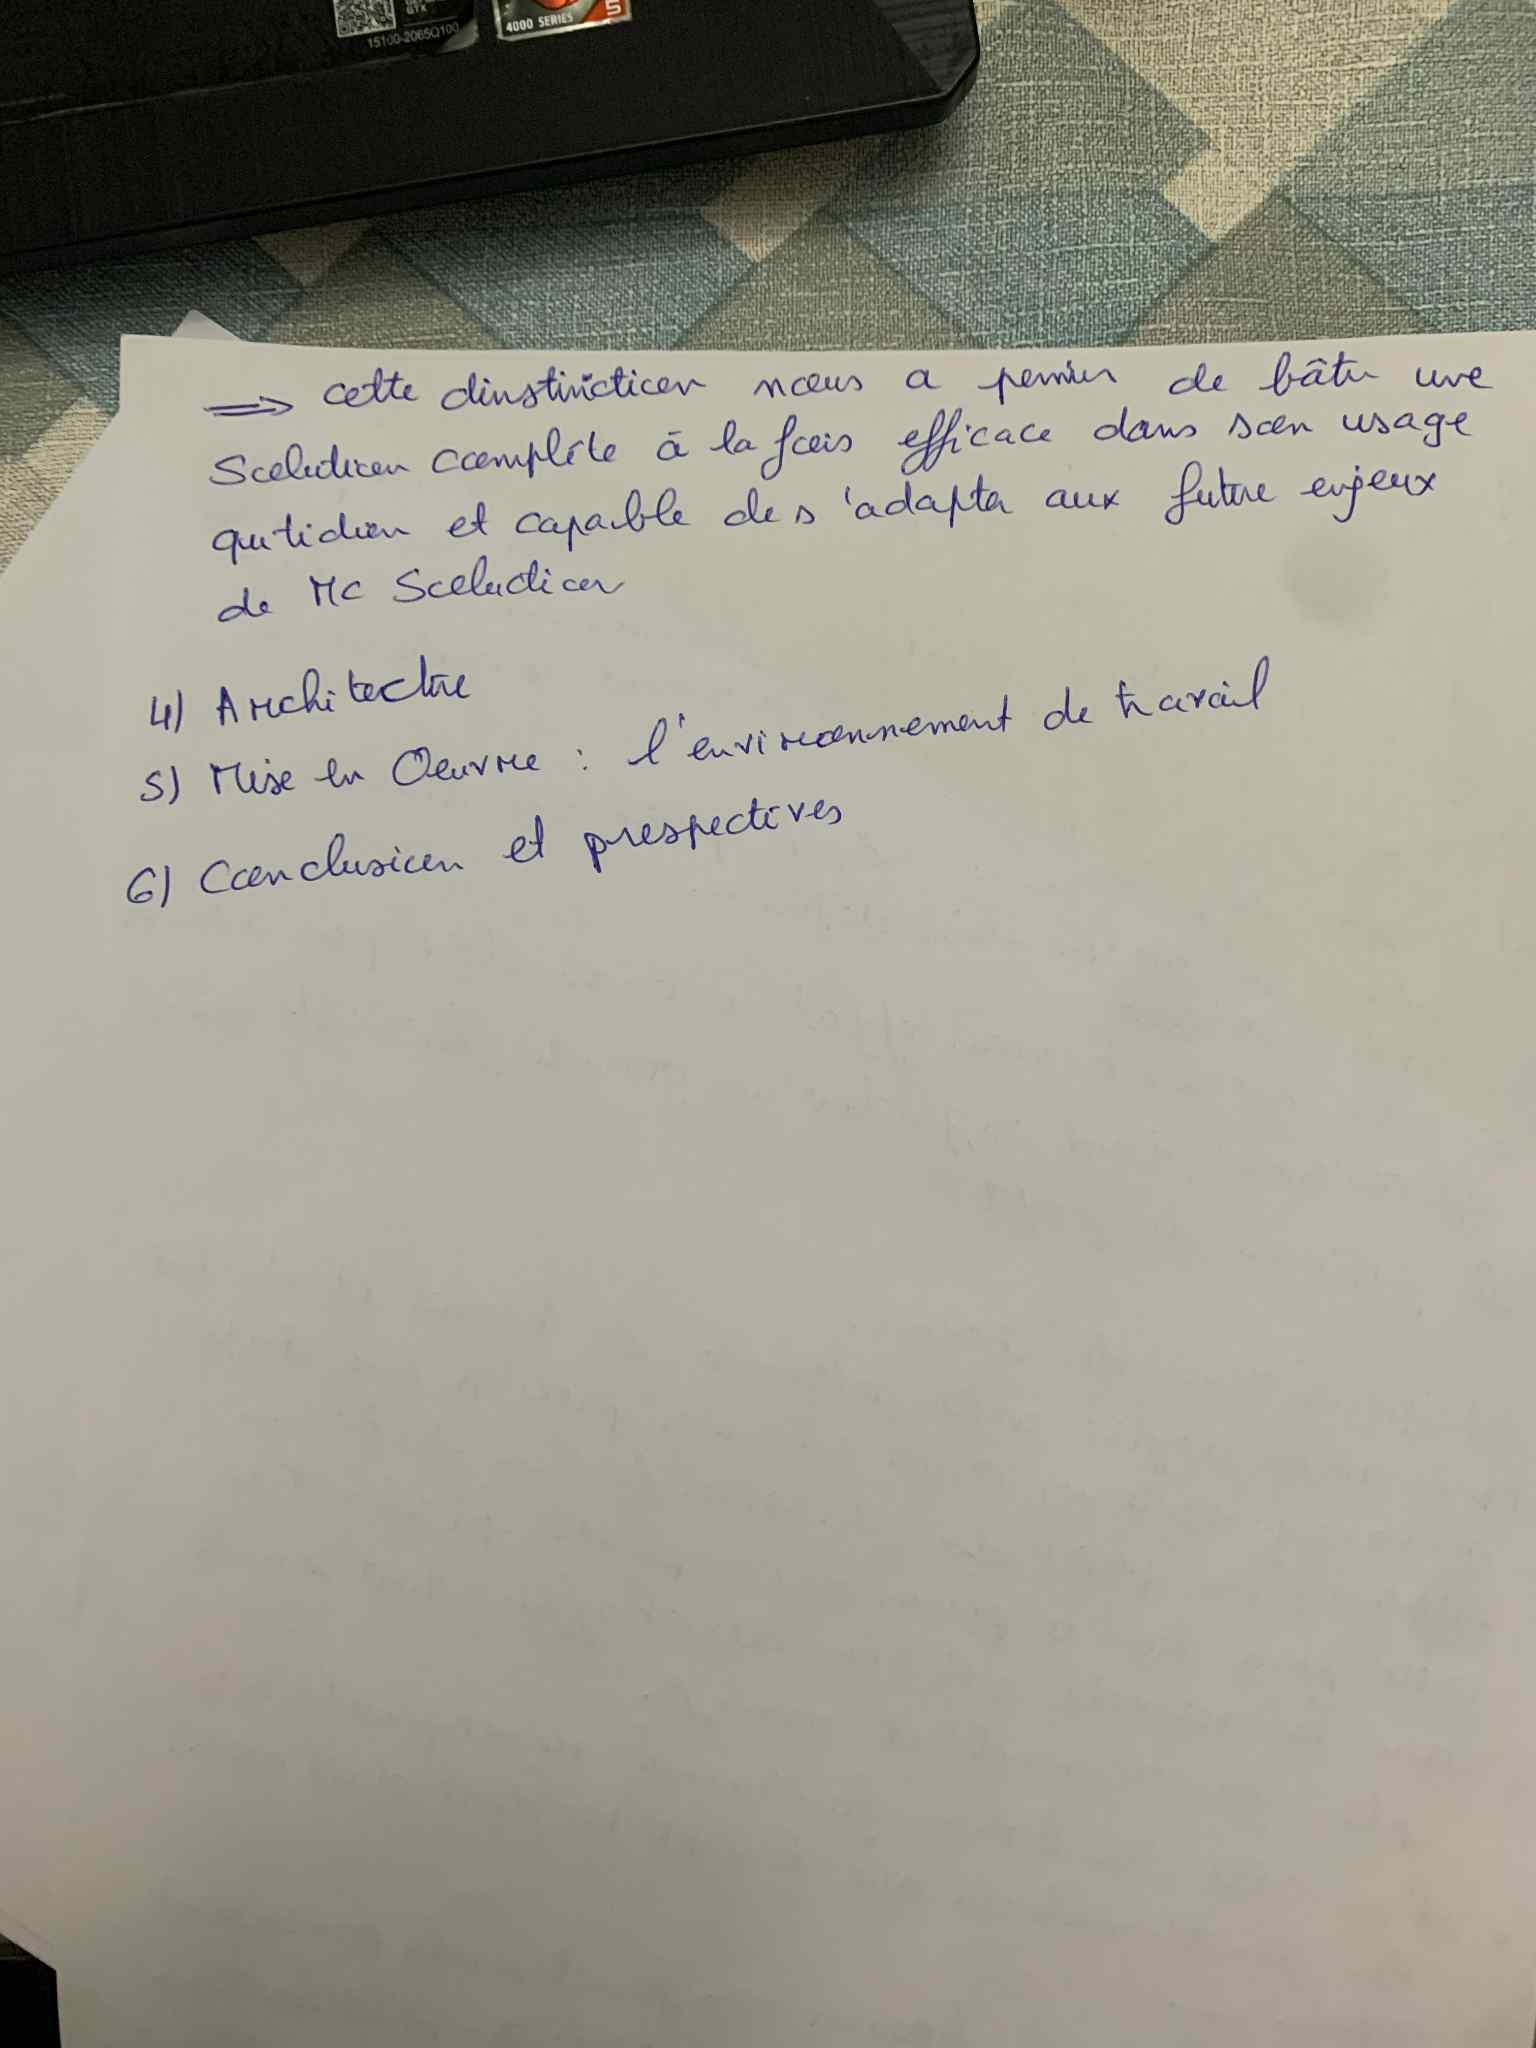 GTX
15100-2065Q100
4000 SERIES
5
⇒ cette dinstinction nous a permis de bâtir une
Solution complète à la fois efficace dans son usage
qutidien et capable de s'adapter aux future enjeux
de MC Solution
4) Architecture
5) Mise en Oeuvre : l'environnement de travail
6) Conclusion et prespectives